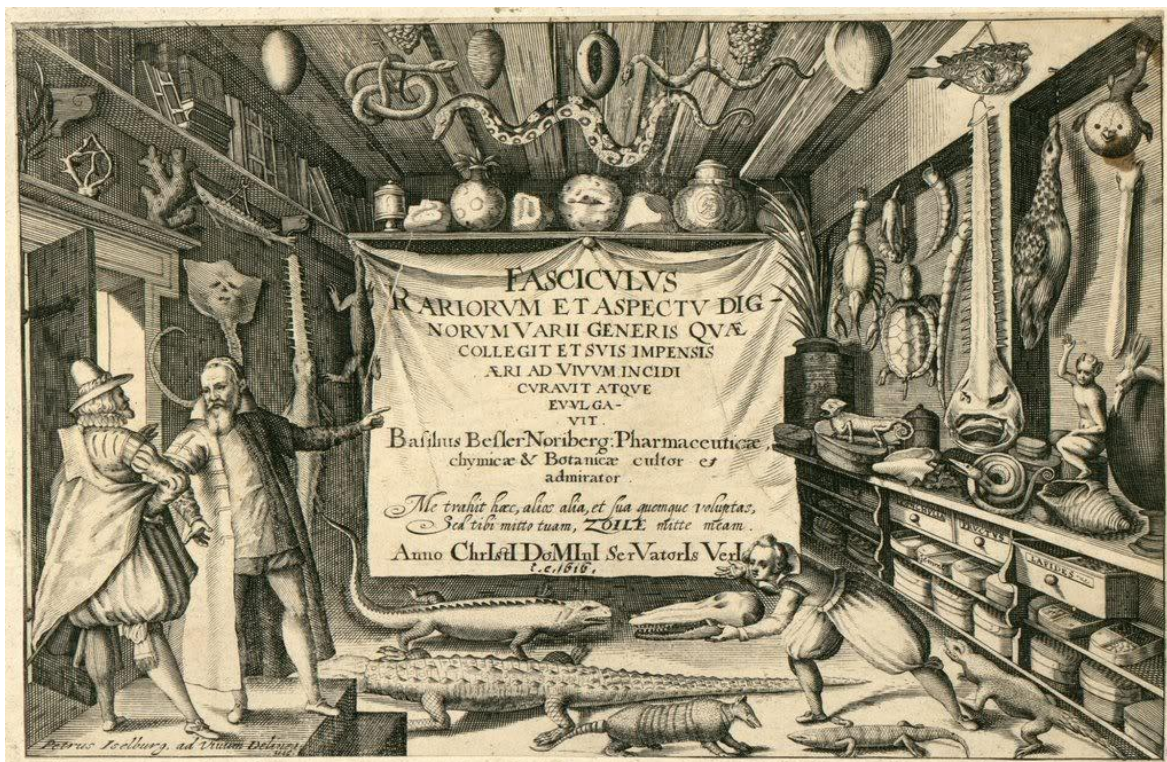 FASCICVLVS
RARIORVM ET ASPECTV DIG-
NORVM VARII GENERIS QVÆ
COLLEGIT ET SVIS IMPENSIS
ÆRI AD VIVUM INCIDI
CVRAVIT ATQVE
EVVLGA-
VIT.
Basilius Besler Noriberg: Pharmaceuticæ,
chymicæ & Botanicæ cultor et
admirator.
Me trahit hæc, alios alia, et sua quemque voluptas,
Sed tibi mitto tuam, ZOILE mitte meam.
Anno ChrIstI DoMInI SerVatorIs VerI
1616.
FRVCTVS
LAPIDES
Petrus Iselburg. ad Vivum Delineavit